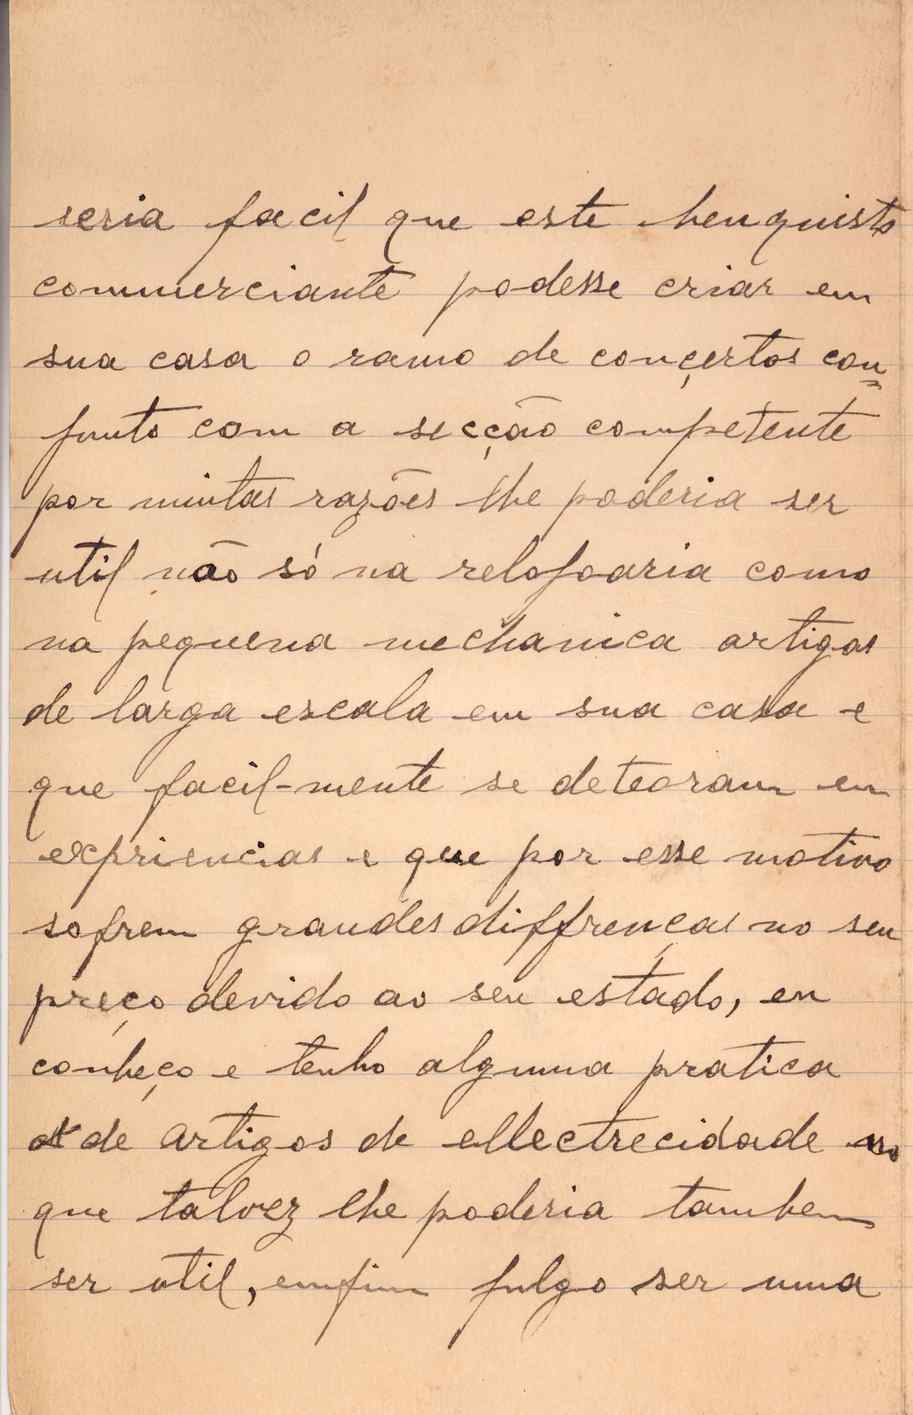 seria facil que este benquisto
commerciante podesse criar em
sua casa o ramo de conçertos con=
junto com a secção competente
por muitas razões lhe poderia ser
util não só na relojoaria como
na pequena mechanica artigos
de larga escala em sua casa e
que facil-mente se deteoram em
expriencias e que por esse motivo
sofrem grandes diffrenças no seu
preço devido ao seu estado, eu
conheço e tenho alguma pratica
de artigos de ellectrecidade no
que talvez lhe poderia tambem
ser util, emfim julgo ser uma